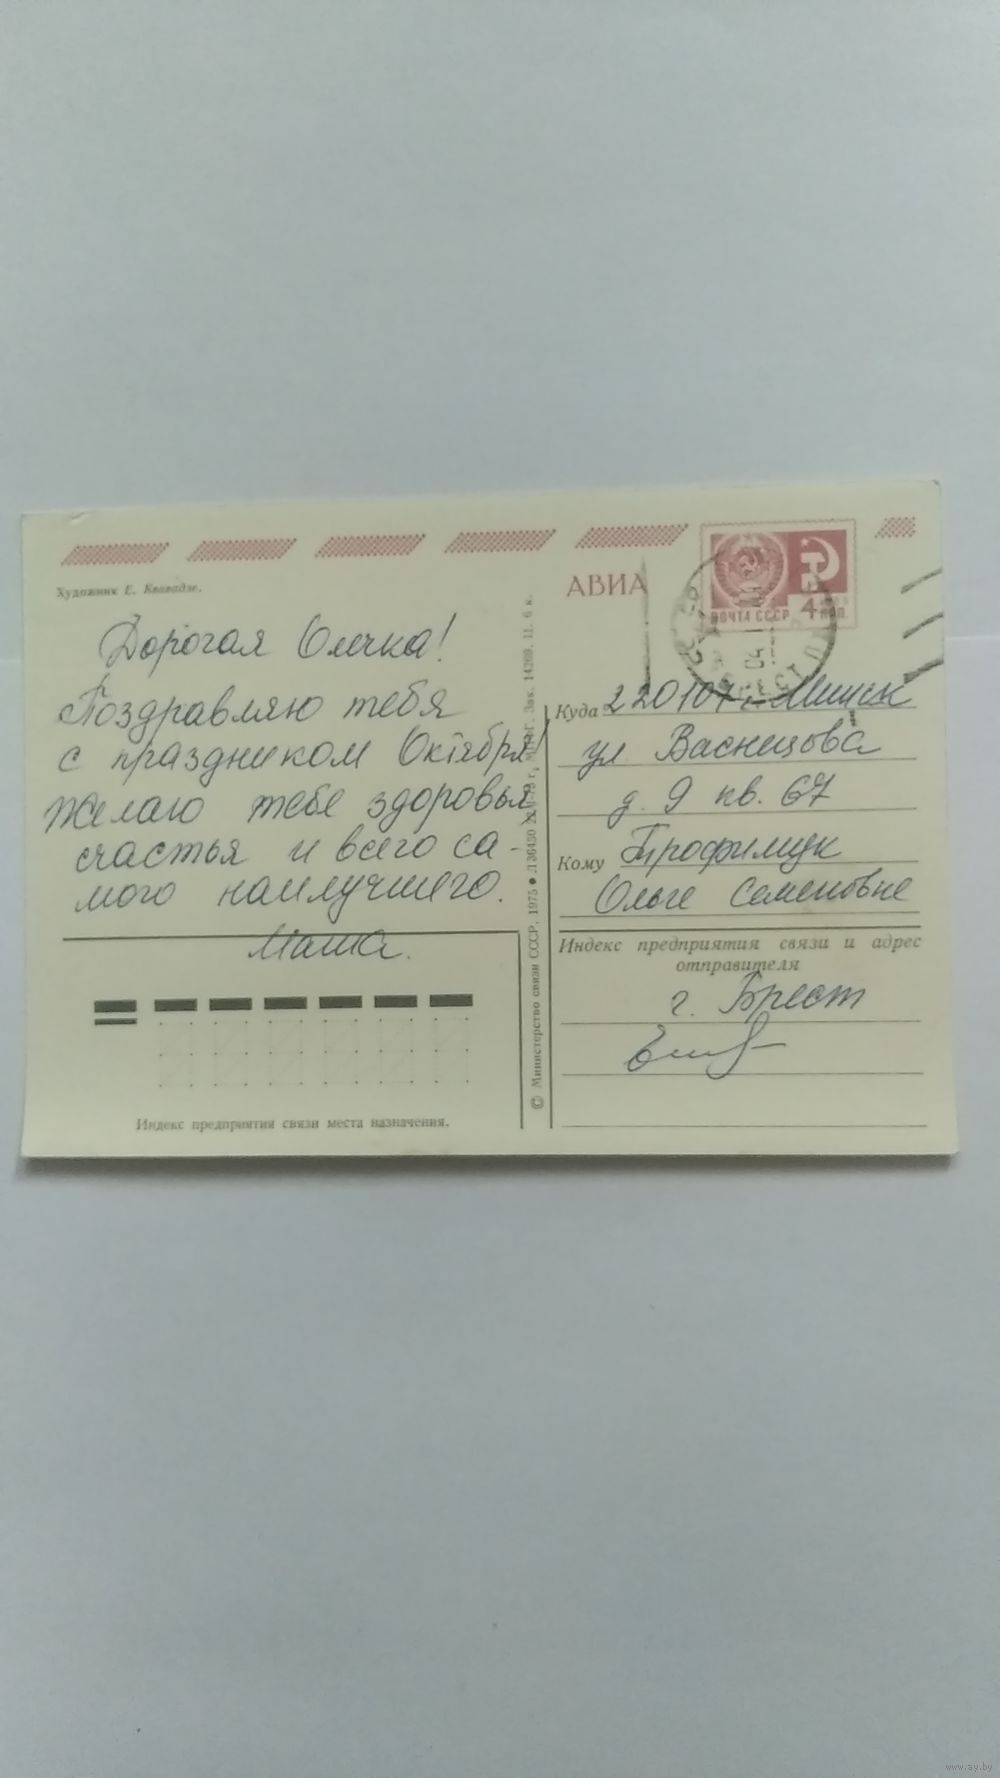 Художник Е. Квавадзе.
АВИА
ПОЧТА СССР 4 КОП.
Дорогая Олечка!
Поздравляю тебя
с праздником Октября!
Желаю тебе здоровья,
счастья и всего са-
мого наилучшего.
Маша.
Индекс предприятия связи места назначения.
© Министерство связи СССР, 1975 ● Л36450 Зак. 14269. Ц. 6 к.
Куда 220107, Минск
ул Васнецова
д. 9 кв. 67
Кому Трофимук
Ольге Семеновне
Индекс предприятия связи и адрес
отправителя
г. Брест
www.ay.by